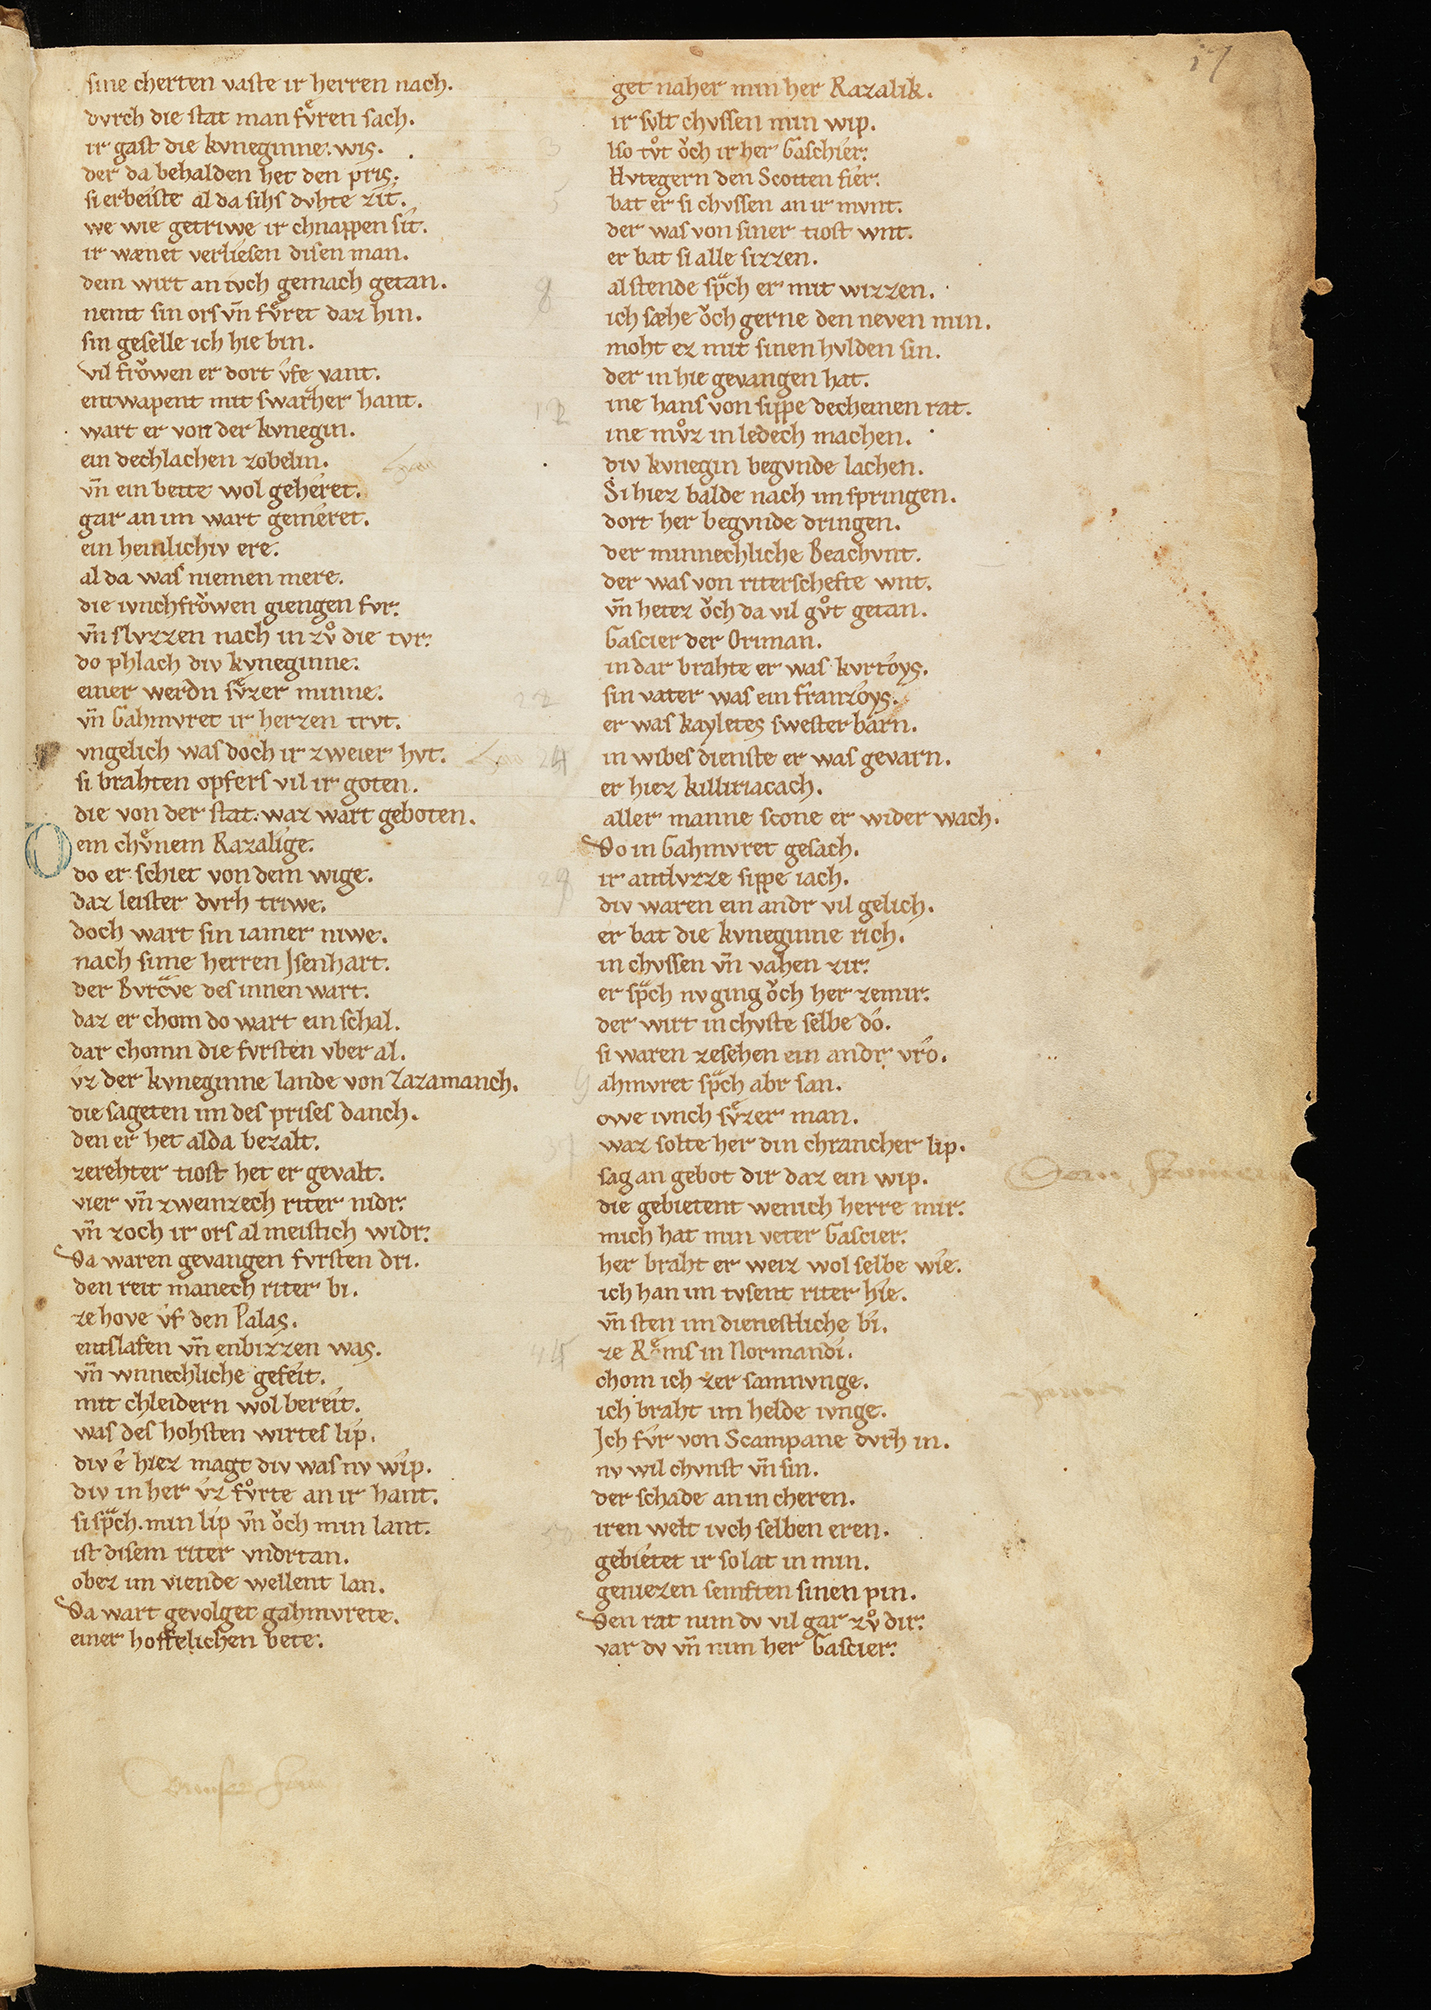 17
sine cherten vaste ir herren nach.
dvrch die stat man fvͤren sach.
ir gast die kvneginne. wis.
der da behalden het den pris.
si erbeiste al da sihs dvhte zit.
we wie getriwe ir chnappen sit.
ir wænet verliesen disen man.
dem wirt an ivch gemach getan.
nemt sin ors vn̄ fvͤret daz hin.
sin geselle ich hie bin.
vil frǒwen er dort vfe vant.
entwapent mit swarͣher hant.
wart er von der kvnegin.
ein dechlachen zobelin.
vn̄ ein bette wol geheret.
gar an im wart gemeret.
ein heinlichiv ere.
al da was niemen mere.
die ivnchfrǒwen giengen fvr.
vn̄ slvzzen nach in zvͦ die tvr.
do phlach div kvneginne.
einer werdn svͤzer minne.
vn̄ Gahmvret ir herzen trvt.
vngelich was doch ir zweier hvt.
si brahten opfers vil ir goten.
die von der stat. waz wart geboten.
em chvͤnem Razalige.
do er schiet von dem wige.
daz leister dvrh triwe.
doch wart sin iamer niwe.
nach sime herren Jsenhart.
der Bvrcͣve des innen wart.
daz er chom do wart ein schal.
dar chomn die fvrsten vber al.
vz der kvneginne lande von Zazamanch.
die sageten im des prises danch.
den er het alda bezalt.
zerehter tiost het er gevalt.
vier vn̄ zweinzech riter nidr.
vn̄ zoch ir ors al meistich widr.
Da waren gevangen fvrsten dri.
den reit manech riter bi.
ze hove vf den Palas.
entslafen vn̄ enbizzen was.
vn̄ wnnechliche gefeit.
mit chleidern wol bereit.
was des hohsten wirtes lip.
div ê hiez magt div was nv wip.
div in her vz fvͦrte an ir hant.
si spͣch. min lip vn̄ ǒch min lant.
ist disem riter vndrtan.
obez im viende wellent lan.
Da wart gevolget gahmvrete.
einer hoffelichen bete.
get naher min her Razalik.
ir svlt chvssen min wip.
lso tvͦt ǒch ir her Gaschier.
Hvtegern den Scotten fier.
bat er si chvssen an ir mvnt.
der was von siner tiost wnt.
er bat si alle sizzen.
al stende spͣch er mit wizzen.
ich sæhe ǒch gerne den neven min.
moht ez mit sinen hvlden sin.
der in hie gevangen hat.
ine hans von sippe decheinen rat.
ine mvͦz in ledech machen.
div kvnegin begvnde lachen.
Si hiez balde nach im springen.
dort her begvnde dringen.
der minnechliche Beachvnt.
der was von riterschefte wnt.
vn̄ hetez ǒch da vil gvͦt getan.
Gascier der Oriman.
in dar brahte er was kvrtoys.
sin vater was ein franzoys.
er was kayletes swester barn.
in wibes dienste er was gevarn.
er hiez killiriacach.
aller manne scone er wider wach.
Do in Gahmvret gesach.
ir antlvzze sippe iach.
div waren ein andr vil gelich.
er bat die kvneginne rich.
in chvssen vn̄ vahen zir.
er spͣch nv ging ǒch her zemir.
der wirt in chvste selbe do.
si waren zesehen ein andr vro.
ahmvret spͣch abr san.
owe ivnch svͤzer man.
waz solte her din chrancher lip.
sag an gebot dir daz ein wip.
die gebietent wenich herre mir.
mich hat min veter Gascier.
her braht er weiz wol selbe wie.
ich han im tvsent riter hie.
vn̄ sten im dienestliche bi.
ze Rͤms in Normandi.
chom ich zer samnvnge.
ich braht im helde ivnge.
Jch fvr von Scampane dvrh in.
nv wil chvnst vn̄ sin.
der schade an in cheren.
iren welt ivch selben eren.
gebietet ir so lat in min.
geniezen semften sinen pin.
Den rat nim dv vil gar zvͦ dir.
var dv vn̄ nim her Gascier.